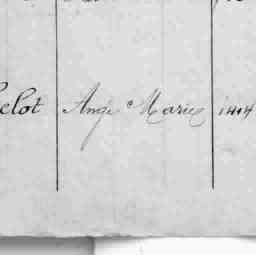 elot Ange Marie 1414